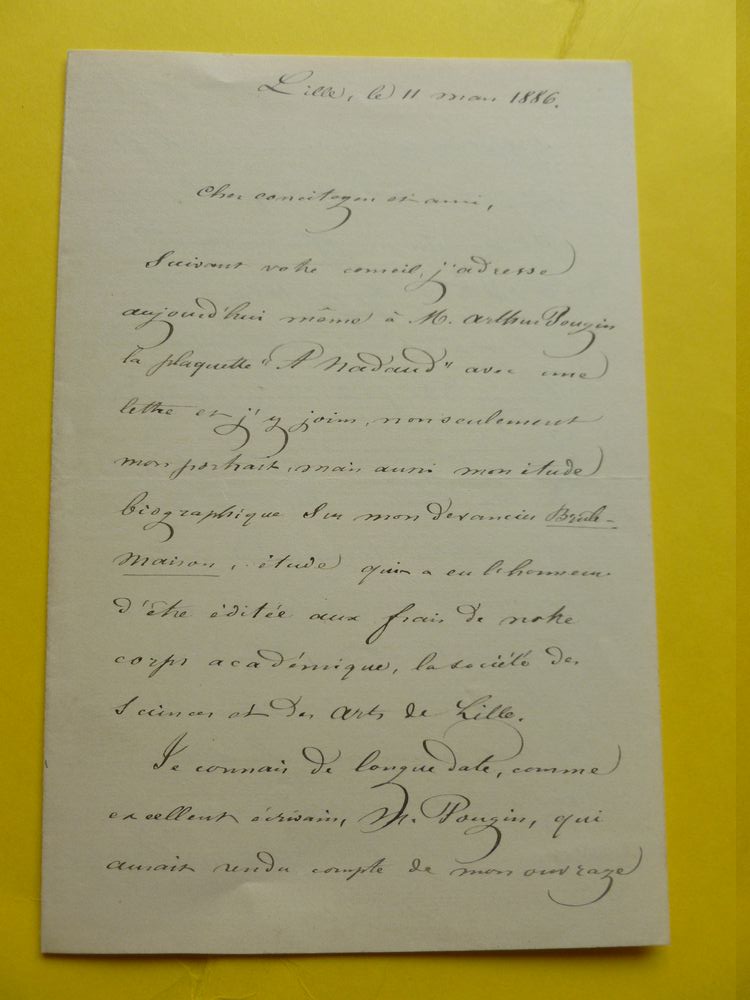 Lille, le 11 mars 1886.
Cher concitoyen et ami,
Suivant votre conseil, j'adresse
aujourd'hui même à M. Arthur Pougin
la plaquette "A Nadaud" avec une
lettre et j'y joins, non seulement
mon portrait, mais aussi mon étude
biographique sur mon devancier Brûle-
Maison, étude qui a eu l'honneur
d'être éditée aux frais de notre
corps académique, la société des
Sciences et des Arts de Lille.
Je connais de longue date, comme
excellent écrivain, M. Pougin, qui
aurait rendu compte de mon ouvrage